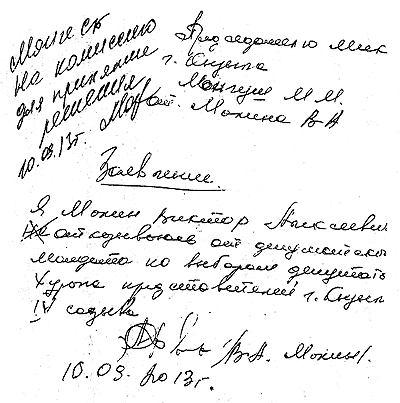 на комиссию
для принятия
решения
10.09.13г.
Председателю МИК
г. Кызыла
Монгуш М.М.
от Мокина В А
Заявление.
Я Мокин Виктор Алексеевич
отказываюсь от депутатского
мандата по выборам депутатов
Хурала представителей г. Кызыла
IV созыва
В.А. Мокин.
10.09.2013г.